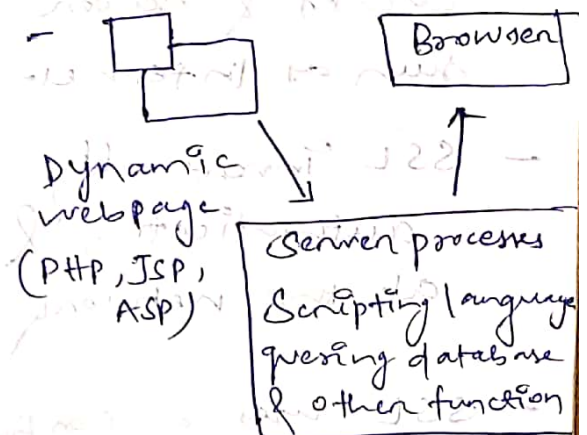 -
Browser
Dynamic
webpage
(PHP, JSP,
ASP)
Server processes
Scripting language
quering database
& other function